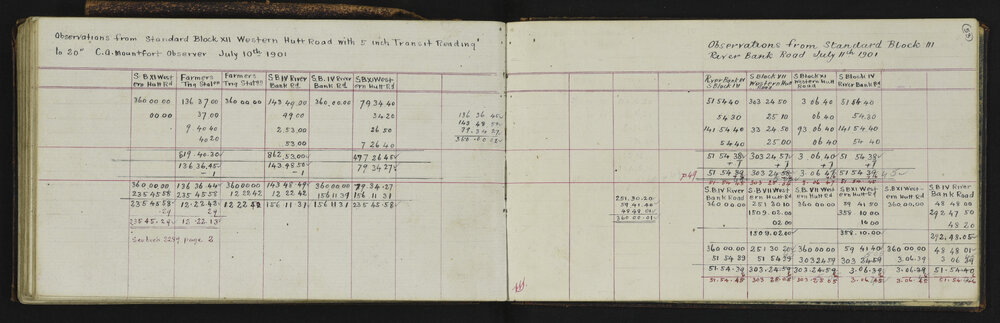 Observations from Standard Block XII Western Hutt Road with 5 inch Transit Reading
to 20" C.A. Mountfort Observer July 10th 1901
S.B XI West Farmers Farmers S.B IV River S.B. IV River S.B XI West
ern Hutt Rd Trig Statn Trig Statn Bank Rd Bank Rd ern Hutt Rd
360 00 00 136 37 00 360 00 00 143 49 00 360,00.00 79 34 40
00.00 37.00 49.00 34 20
9 40 40 2.53.00 26 50
40 20 53.00 7 26 40
819.40.30 862 53.00 477 26 45
136 36.45 143 48.50 79 34 27
-1 -1
136 36 45
143 48 50
79.34 27
360.0.02
360 00.00 136 36 44 360 00 00 143 48 49 360 00.00 79.34.27
235 45 58 235 45 58 12 22 42 12 22 42 156 11 31 156 11 31
235 45 58 12.22.42 12 22 42 156 11 31 156 11 31 235 45.58
29 29
235 45.29 12.22.13
See book 2289 page 2
Observations from Standard Block III
River Bank Road July 11th 1901
S Block VII S Block XI S Block IV
Western Hutt Western Hutt River Bank Rd
Road Road
51 54 40 303 24 50 3 06 40 51 54 40
54 30 25 10 06 40 54.30
141 54 40 33 24 50 93 06 40 141 54 40
54 40 25.00 06 40 54 40
51 54 38 303 24 57 3 06 40 51 54 38
+1 +1 +1 +1
p49
251.30.20
59 41.40
48 48 01
360 00.01
S.B IV River S.B VII West S.B VII West S.B XI West S.B XI West S.B IV River
Bank Road ern Hutt Rd ern Hutt Rd ern Hutt Rd ern Hutt Rd Bank Road
360 00 00 251 30 10 360 00 00 59 41 50 360 00.00 48 48 00
1509.02.00 358 10 00 292 47 50
02 00 10 00 48 20
1509.02.00 358.10.00 292.48.05
360 00.00 251 30 20 360 00 00 59 41 40 360 00 00 48 48 01
51 54 39 51 54 39 303 24 59 303 24 59 3.06.39 3 06 39
51.54.39 303.24.59 303.24.59 3.06.39 3.06.39 51.54.40